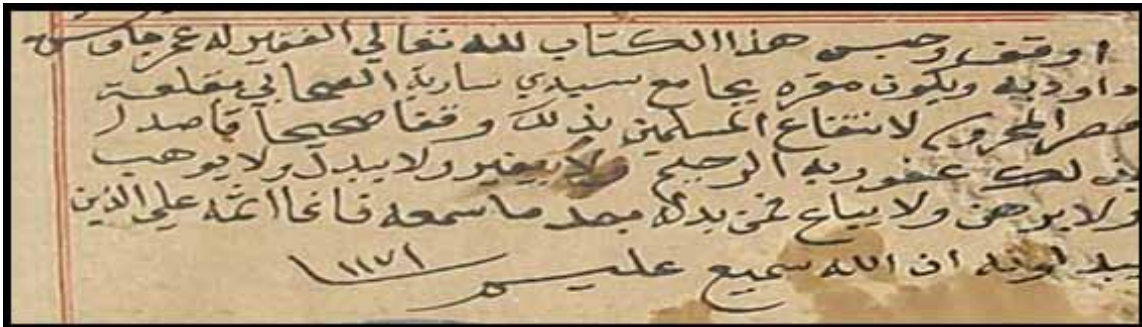 اوقف وحبس هذا الكتاب لله تعالي الفقير له عمر جاويش
داوديه ويكون مقره بجامع سيدي سارية الصحابي بقلعة
مصر المحروس لانتفاع المسلمين بذلك وقفا صحيحا قاصدا
بذلك عفو ربه الرحيم ولا يغير ولا يبدل ولا يوهب
ولا يرهن ولا يباع فمن بدله بعد ما سمعه فانما اثمه علي الذين
يبدلونه ان الله سميع عليم ١١٧١